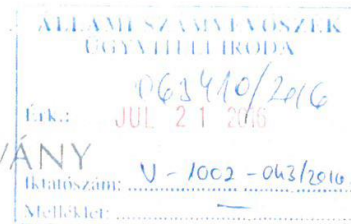 ÁLLAMI SZÁMVEVŐSZÉK
ÜGYVITELI IRODA
063410/2016
Érk.: JUL 21 2016
VÁNY
Iktatószám: V-1002-043/2016
Melléklet: —